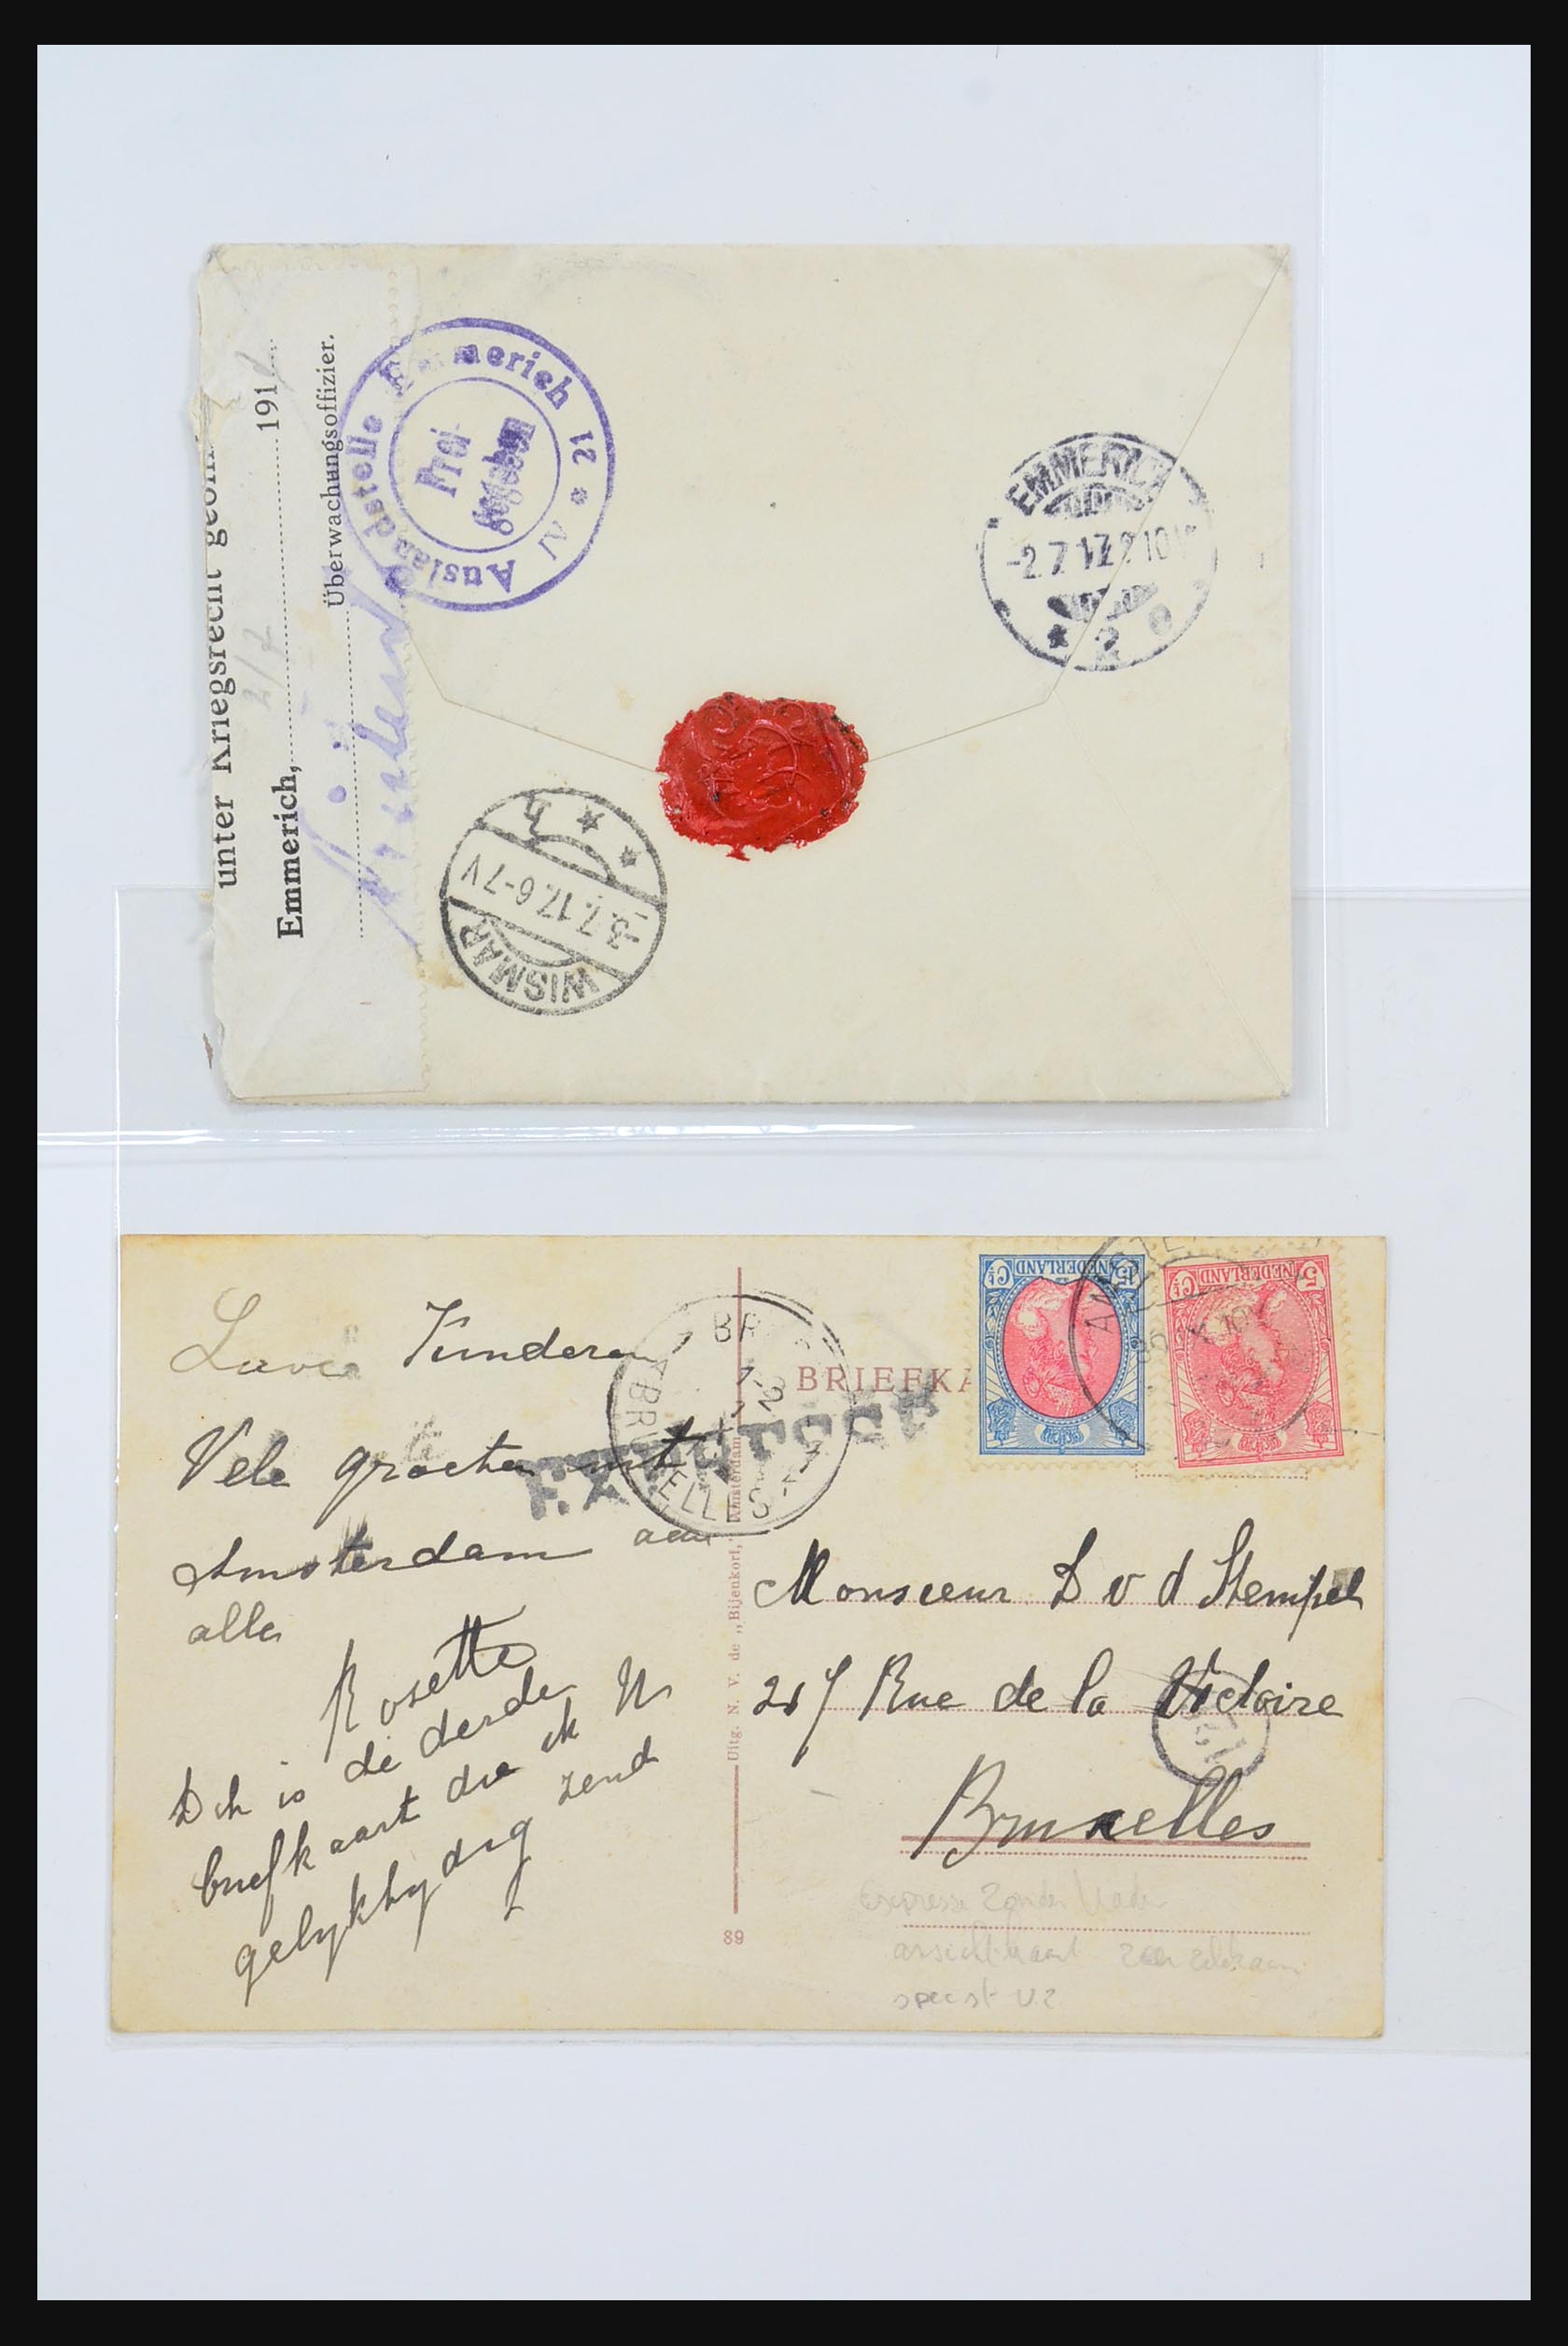 unter Kriegsrecht geöff
Emmerich, 2/7 191
Überwachungsoffizier.
Auslandstelle Emmerich
Frei-
gegeben
IV * 12
EMMERICH
-2.7.17.
* 2
WISMAR
-3.7.17.6-7V
* *
Lieve Kinderen
Vele groeten uit
Amsterdam aan
alle
Rosette
Dit is de derde
briefkaart die ik U
gelyktydig zend
BRIEFKA
15 Ct NEDERLAND
5 Ct NEDERLAND
BRUXELLES
EXPRESSE
Uitg. N. V. de „Bijenkorf," Amsterdam
89
Monsieur D v d Stempel
Rue de la Victoire
Bruxelles
Expresse zonder
ansichtkaart zeer zeldzaam